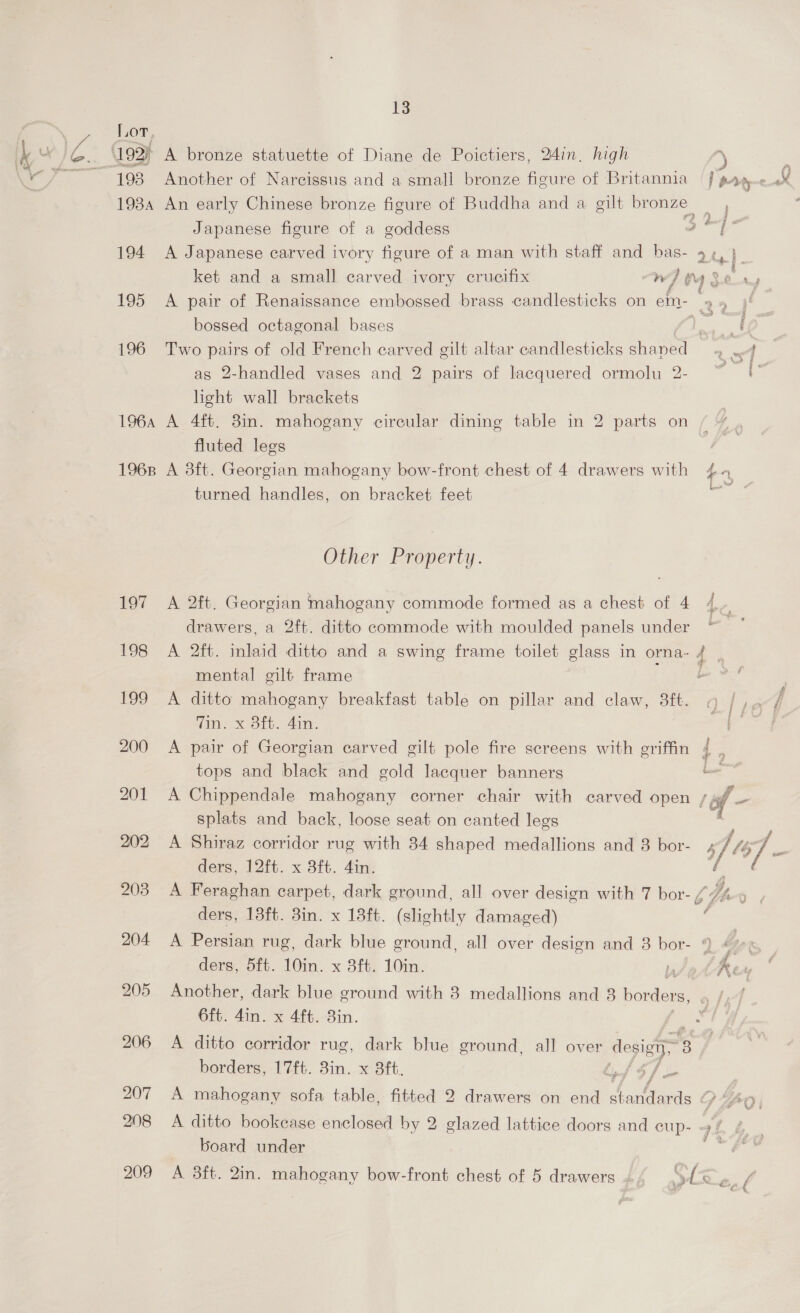 13
Lot.
192 A bronze statuette of Diane de Poictiers, 24in. high
193 Another of Narcissus and a small bronze figure of Britannia
193A An early Chinese bronze figure of Buddha and a gilt bronze
Japanese figure of a goddess
194 A Japanese carved ivory figure of a man with staff and bas-
ket and a small carved ivory crucifix
195 A pair of Renaissance embossed brass candlesticks on em-
bossed octagonal bases
196 Two pairs of old French carved gilt altar candlesticks shaped
as 2-handled vases and 2 pairs of lacquered ormolu 2-
light wall brackets
196A A 4ft. 3in. mahogany circular dining table in 2 parts on
fluted legs
196B A 3ft. Georgian mahogany bow-front chest of 4 drawers with
turned handles, on bracket feet
Other Property.
197 A 2ft. Georgian mahogany commode formed as a chest of 4
drawers, a 2ft. ditto commode with moulded panels under
198 A 2ft. inlaid ditto and a swing frame toilet glass in orna-
mental gilt frame
199 A ditto mahogany breakfast table on pillar and claw, 3ft.
7in. x 3ft. 4in.
200 A pair of Georgian carved gilt pole fire screens with griffin
tops and black and gold lacquer banners
201 A Chippendale mahogany corner chair with carved open
splats and back, loose seat on canted legs
202 A Shiraz corridor rug with 34 shaped medallions and 3 bor-
ders, 12ft. x 3ft. 4in.
203 A Feraghan carpet, dark ground, all over design with 7 bor-
ders, 13ft. 3in. x 13ft. (slightly damaged)
204 A Persian rug, dark blue ground, all over design and 3 bor-
ders, 5ft. 10in. x 3ft. 10in.
205 Another, dark blue ground with 3 medallions and 3 borders,
6ft. 4in. x 4ft. 3in.
206 A ditto corridor rug, dark blue ground, all over design, 3
borders, 17ft. 3in. x 3ft.
207 A mahogany sofa table, fitted 2 drawers on end standards
208 A ditto bookcase enclosed by 2 glazed lattice doors and cup-
board under
209 A 3ft. 2in. mahogany bow-front chest of 5 drawers